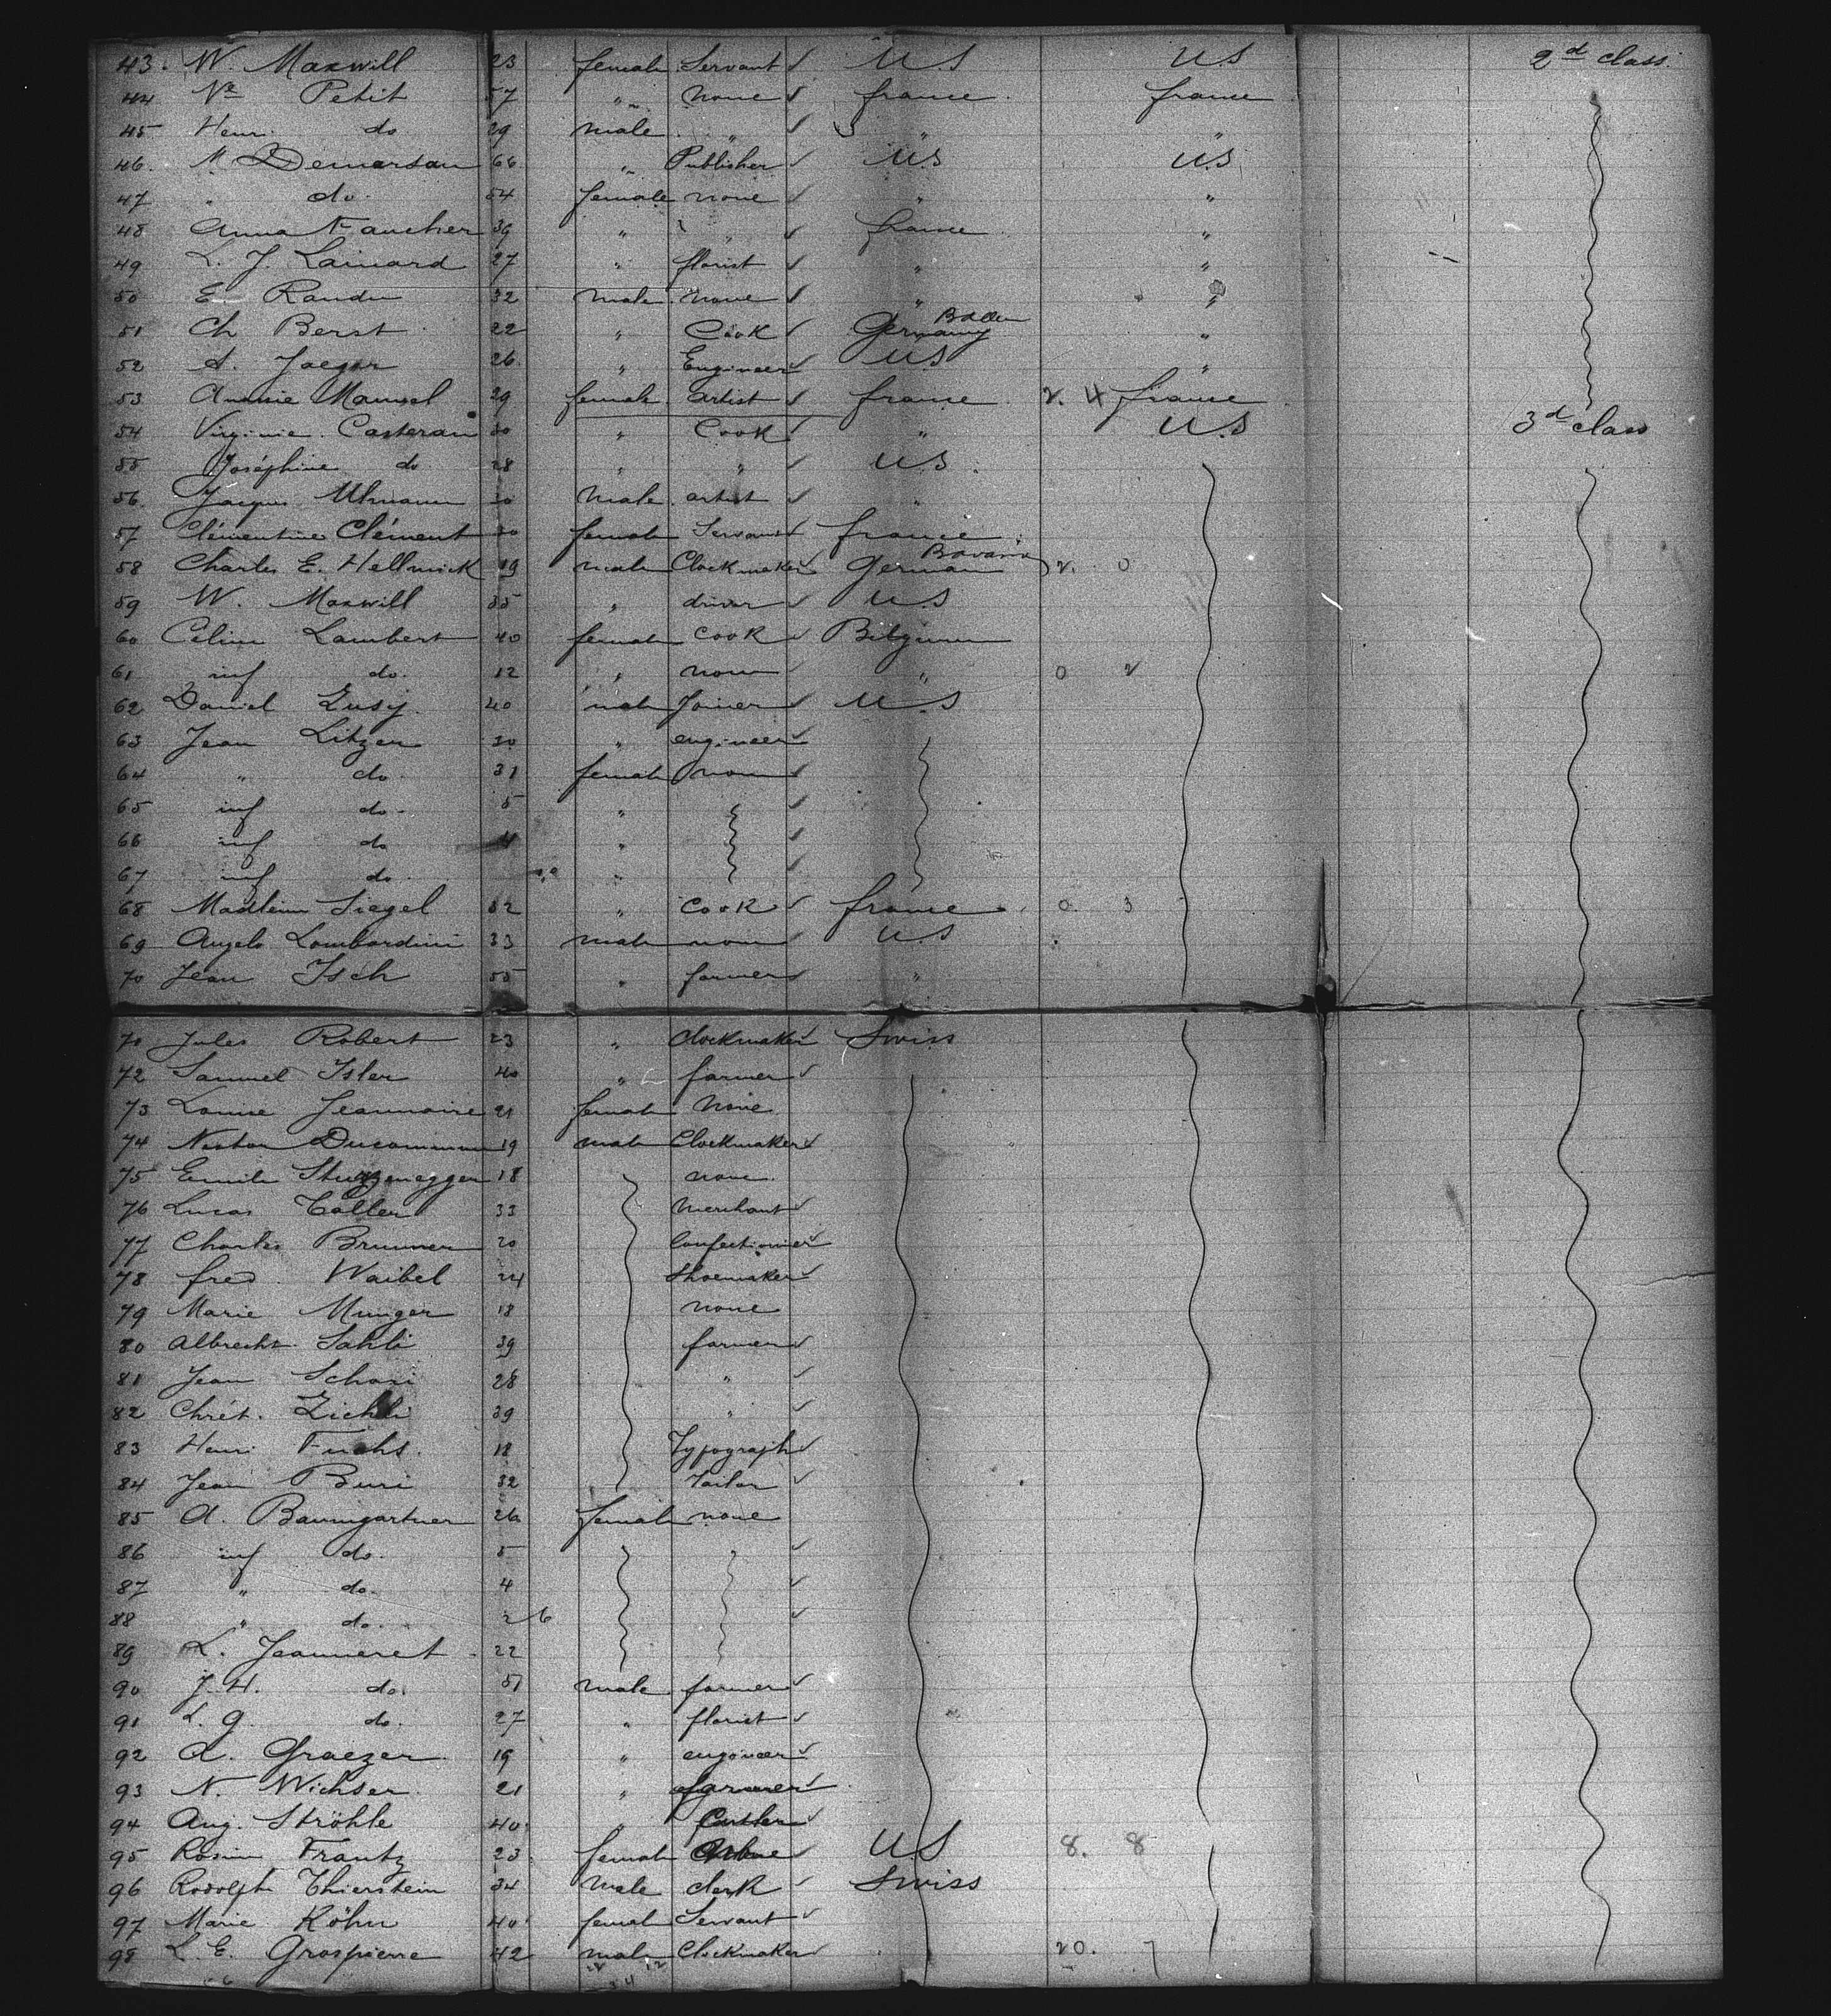 43. W. Maxwill 23 female Servant ✓ U.S U.S 2d class.
44 Ve Petit 57 " none ✓ france france
45 Henri do 29 male " ✓ " "
46. M. Demarsan 66 " Publisher ✓ U.S U.S
47 " do. 54 female none ✓ " "
48 Anna Faucher 39 " " ✓ france "
49 L. J. Lainard 27 " florist ✓ " "
50 E. Randu 32 male none ✓ " "
51 Ch Berst 22 " Cook ✓ Germany Baden "
52 A. Jaeger 26 " Engineer ✓ U.S "
53 Mamsel 29 female artist ✓ france 2. 4 france
54 Virginie Casteran 30 " Cook ✓ " U.S 3d class
55 Joséphine do 28 " " ✓ U.S
56. Jacques Ulmann 30 male artist ✓ "
57 Clémentine Clément 30 female Servant ✓ france
58 Charles E. Hellmick 19 male Clockmaker ✓ German Bavaria 2. 0
59 W. Maxwill 35 " driver ✓ U.S
60 Celine Lambert 40 female cook ✓ Belgium
61 inf do. 12 " none ✓ " 0 2
62 Daniel Lusy. 40 male Joiner ✓ U.S
63 Jean Litzer 30 " engineer ✓
64 " do. 31 female none ✓
65 inf do. 5 " ✓
66 inf do 4 " ✓
67 inf do. " ✓
68 Madleine Siegel 32 " Cook ✓ france 0. 3
69 Angelo Lombardini 33 male none ✓ U.S
70 Jean Isch 55 " farmer ✓ "
70 Jules Robert 23 " clockmaker ✓ Swiss
72 Samuel Isler 40 " farmer ✓
73 Louise Jeanmaire 21 female None
74 Nestor Ducommun 19 male Clockmaker ✓
75 Emile 18 none.
76 Lucas 33 Merchant ✓
77 Charles Brunner 20 Confectionner ✓
78 fred. Waibel 24 Shoemaker ✓
79 Marie Munger 18 none
80 Albrecht Sahli 39 farmer ✓
81 Jean Schori 28 " ✓
82 Chrét. Zichli 39 " ✓
83 Henri Fuchs. 18 Typograph ✓
84 Jean Buri 32 Tailor ✓
85 A. Baumgartner 26 female none
86 inf do. 5 ✓
87 " do. 4 ✓
88 " do. 2 6 ✓
89 L. Jeanneret 22
90 J. H. do. 51 male farmer ✓
91 L. G. do. 27 " florist ✓
92 A. Graezer 19 " engineer ✓
93 N. Wichser. 21 " farmer ✓
94 Aug. Ströhle 40 " ✓
95 Rosine Frantz 23 female ✓ U.S 8. 8
96 Rodolph Thierstein 34 Male clerk ✓ Swiss
97 Marie Köhn 40 female Servant ✓
98 L. E. Grospierre 42 male Clockmaker ✓ 20. 7